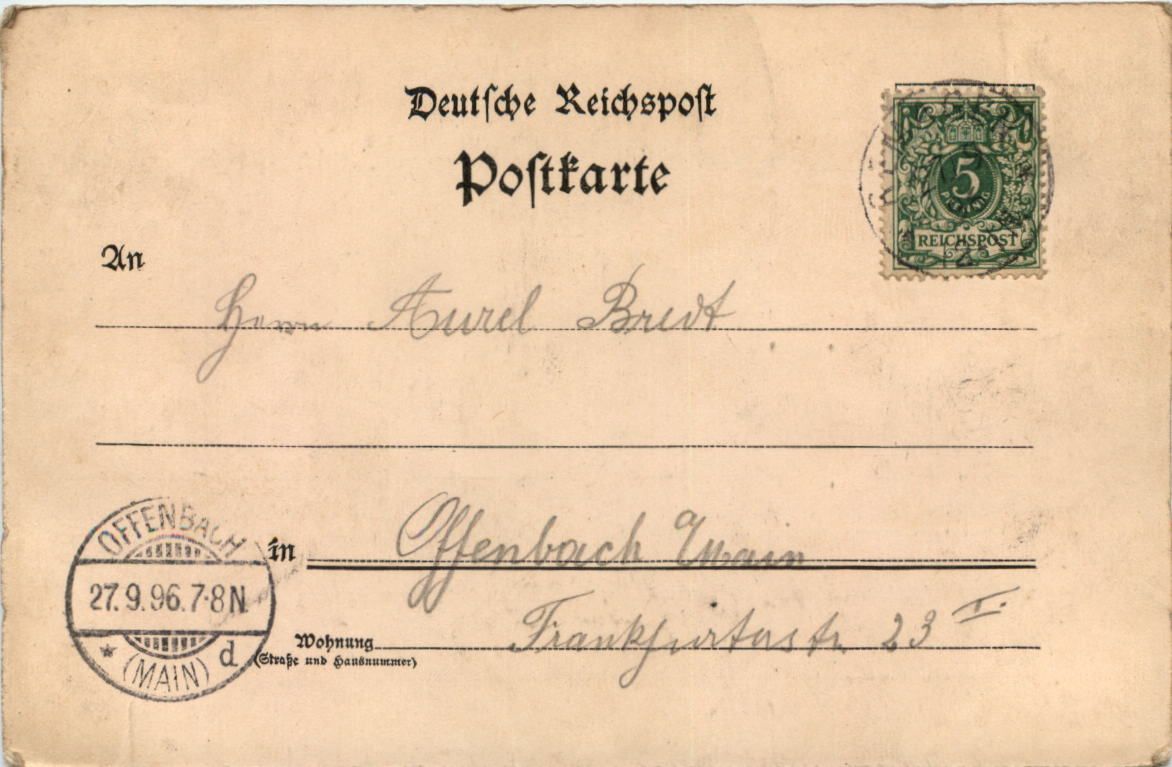 Deutsche Reichspost
Postkarte
5
PFENNIG
REICHSPOST
An
Herrn Aurel Bredt
in Offenbach Main
Wohnung Frankfurterstr. 23 I.
(Straße und Hausnummer)
OFFENBACH
27.9.96.7-8N
* (MAIN) d